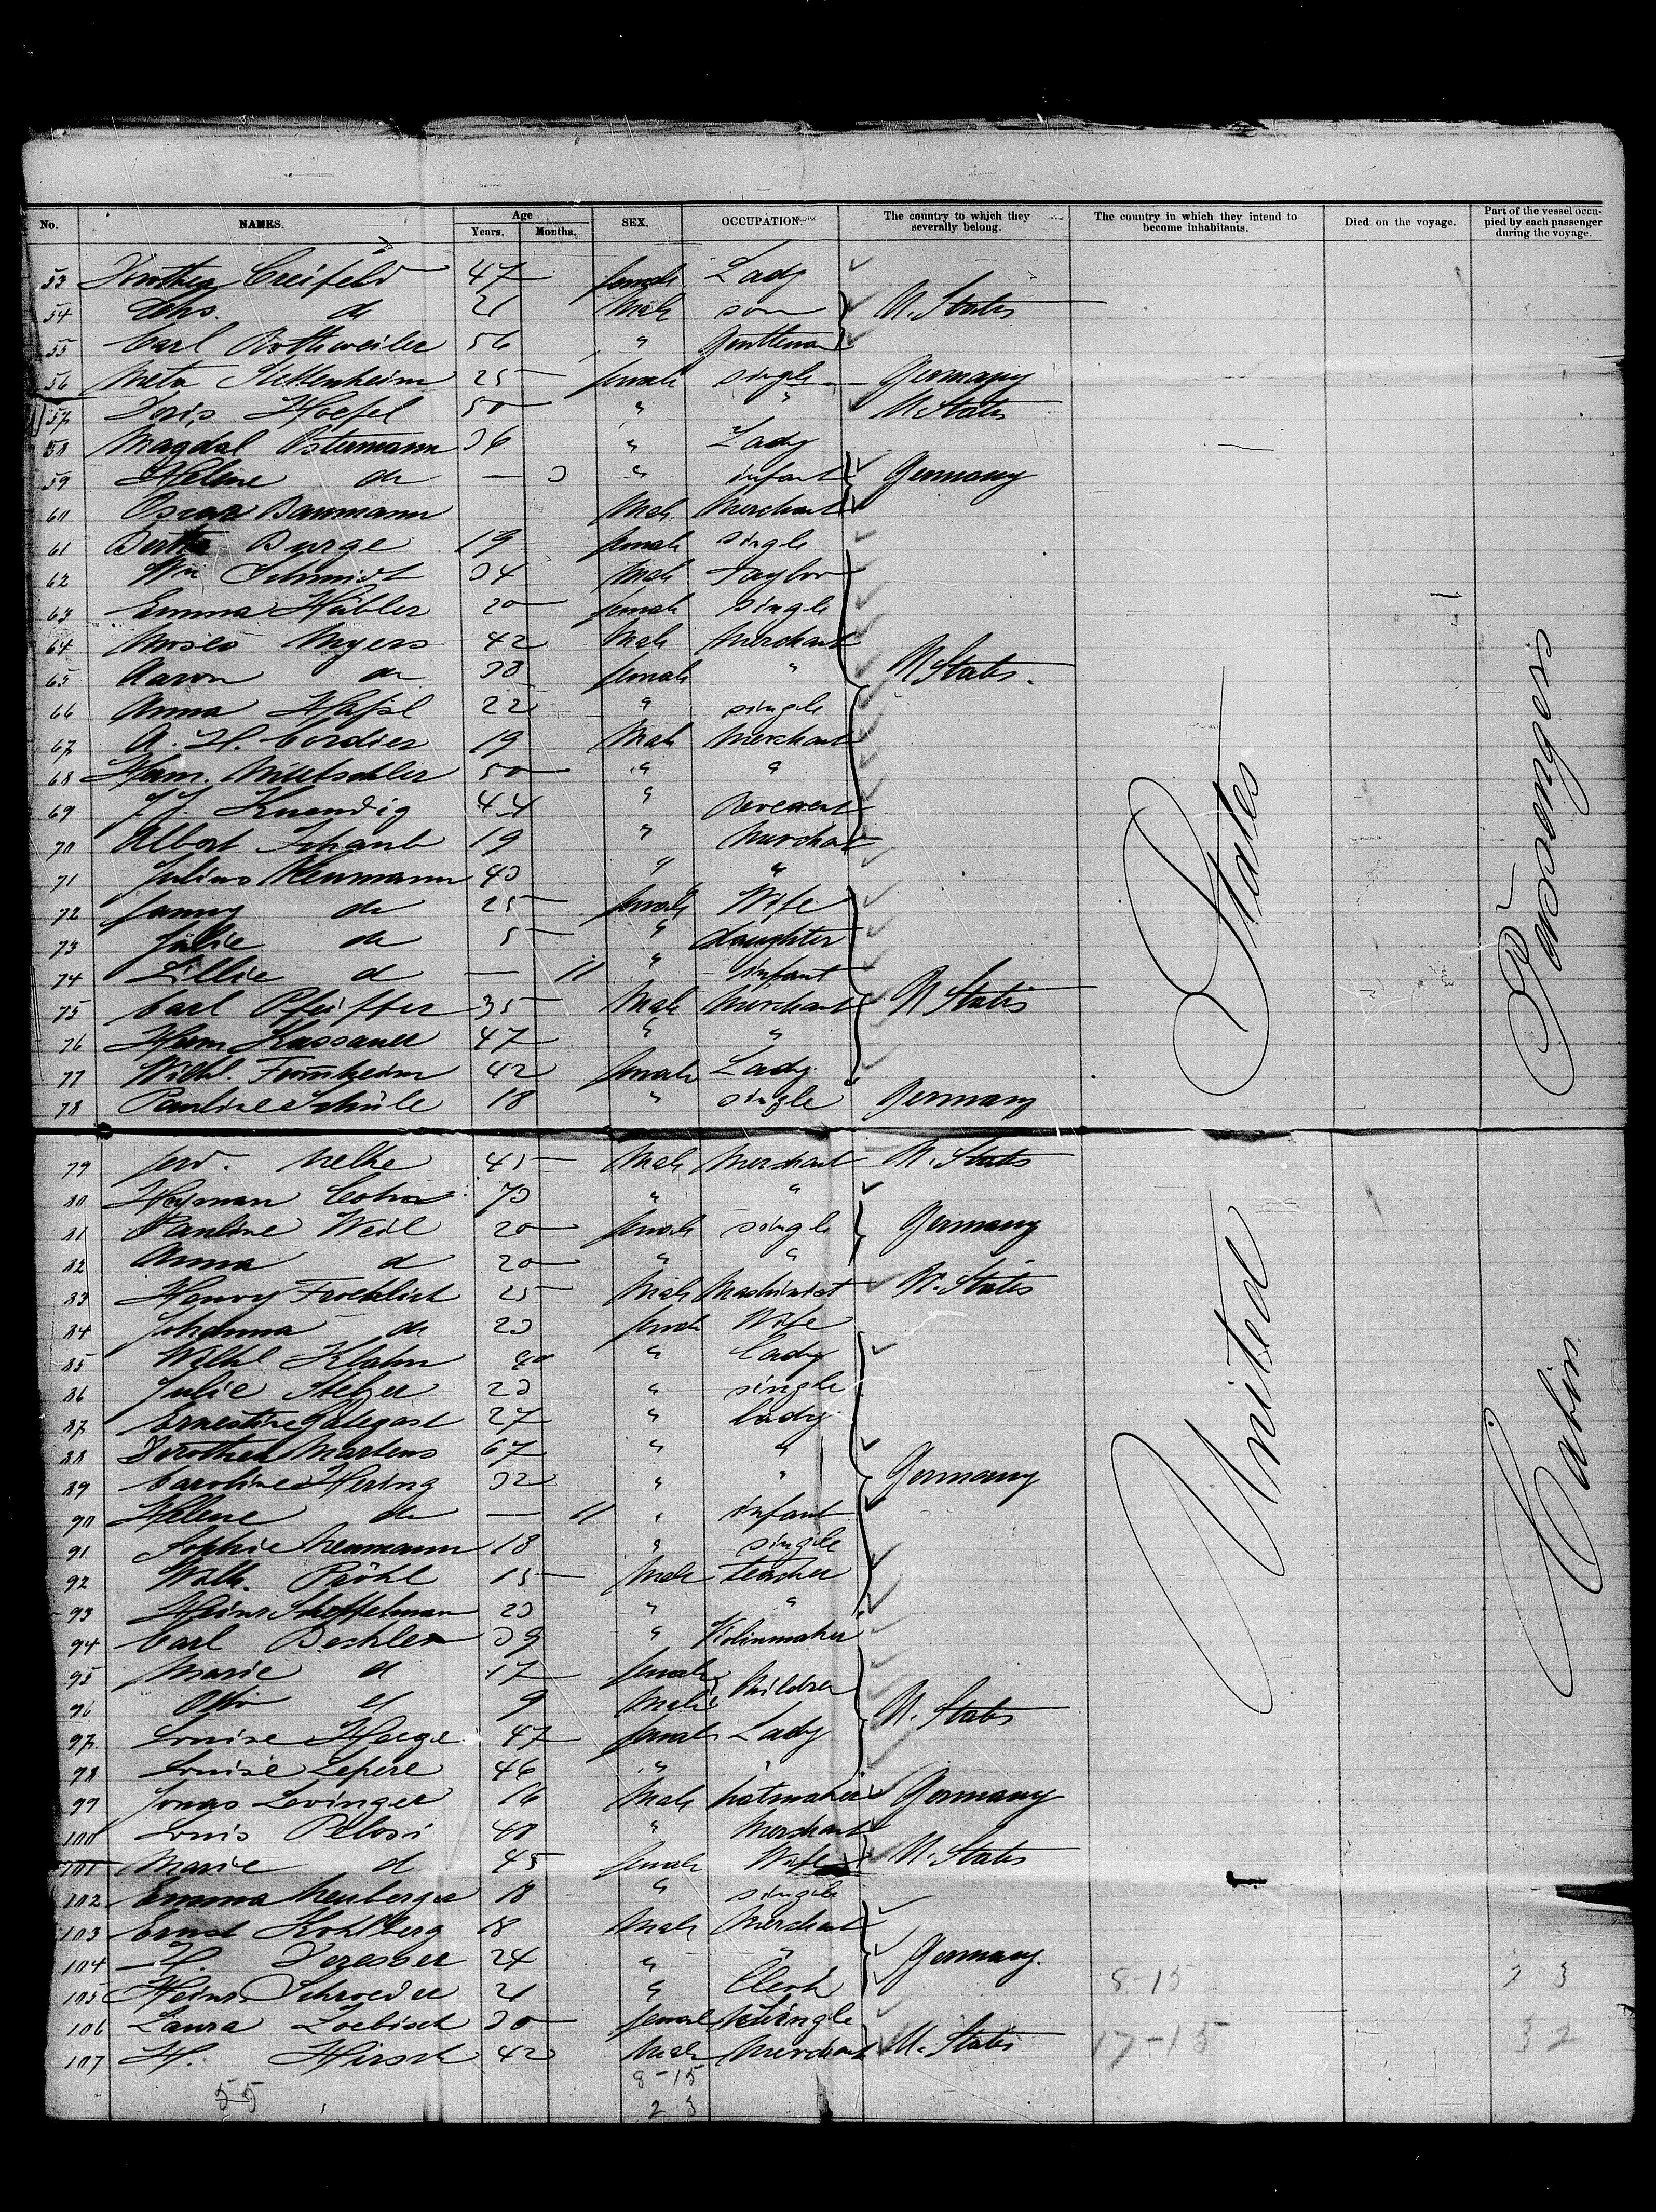 No. NAMES. Age Years. Months. SEX. OCCUPATION. The country to which they severally belong. The country in which they intend to become inhabitants. Died on the voyage. Part of the vessel occupied by each passenger during the voyage.
53 Dorothea Creifeld 47 female Lady
54 Chs. do 21 Male son U. States
55 Carl Rothweiler 56 " Gentleman
56 Meta Stettenheim 25 female single Germany
57 Doris Hoefel 50 " " U States
58 Magdal Ostermann 36 " Lady
59 Helene do — 3 " infant Germany
60 Oscar Baumann Male Merchant
61 Bertha Burge 19 female single
62 Wm Schmidt 34 Male taylor
63 Emma Hübler 20 female single
64 Moses Myers 42 Male Merchant
65 Aaron do 38 female " U States.
66 Anna 22 " single
67 A. H. Cordier 19 Male Merchant
68 Herm. 50 " "
69 J. J. Kuendig 44 " Reverent
70 Albert Schaub 19 " Merchant
71 Julius Neumann 43 " "
72 Fanny do 25 female Wife
73 Julie do 5 " daughter
74 Lillie do — 11 " infant
75 Carl Pfeiffer 35 Male Merchant U States
76 Herm 47 " "
77 Wilhl. 42 female Lady
78 Pauline Schüle 18 " single Germany
79 Ferd. Nelke 45 Male Merchant U. States
80 Heyman Cohn 73 " "
81 Pauline Weil 20 female single Germany
82 Anna do 20 " "
83 Henry Froehlich 25 Male Mashinist U. States
84 Johanna do 23 female Wife
85 Wilhl Klahn 40 " Lady
86 Julie Stelzer 23 " single
87 Ernestine 27 " lady
88 Dorothea Martens 67 " "
89 Caroline Hering 32 " " Germany
90 Helene do — 11 " infant
91 Sophie Neumann 18 " single
92 Wilh. Pröhl 15 Male teacher
93 Heinr 23 " "
94 Carl Beshler 39 "
95 Marie do 17 female Children
96 Otto do 9 Male U. States
97 Louise Heege 47 female Lady
98 Louise Lepere 46 " "
99 Jonas Levinger 16 Male hatmaker Germany
100 Louis Pelosi 48 " Merchant
101 Marie do 45 female Wife U. States
102 Emma Neuberger 18 " single
103 Ernst Kohlberg 18 Male Merchant
104 H. 24 " " Germany.
105 Heinr. Schroeder 21 " Clerk
106 Laura Loebisch 30 female single
107 H. Hirsch 42 Male Merchant U. States
United States
Cabin Passengers
8-15 23
17-15 32
8-15
55 23